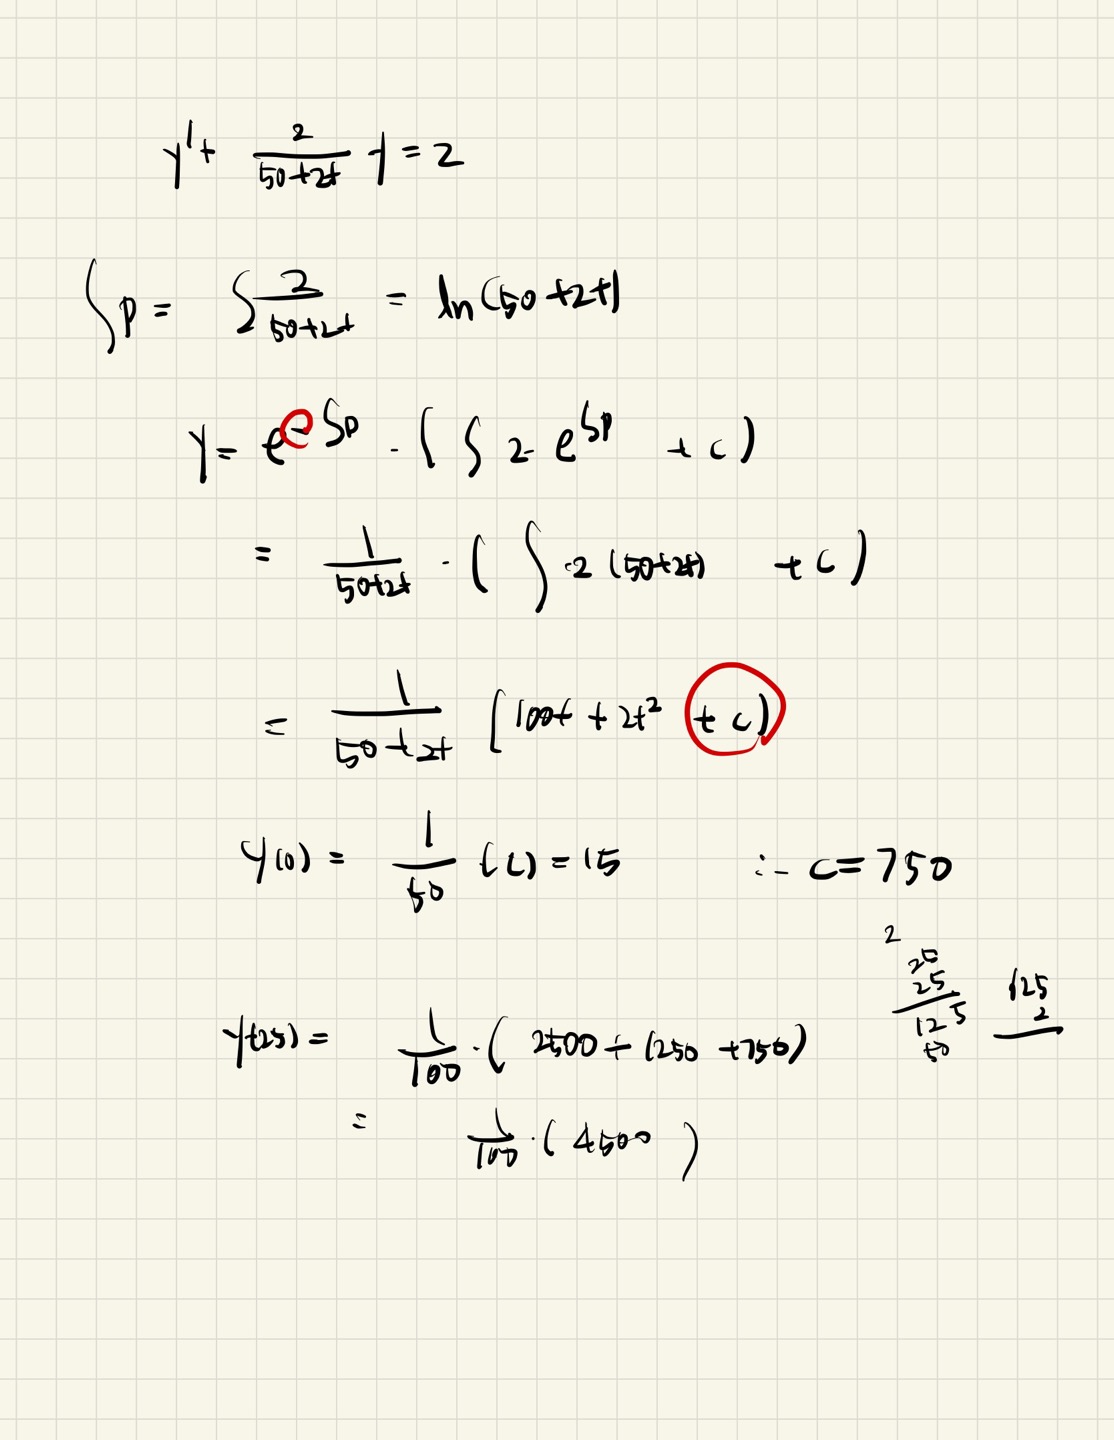 y' + 2/(50+2t) y = 2
∫p = ∫ 2/(50+2t) = ln(50+2t)
y = e^(-∫p) · ( ∫ 2 · e^(∫p) + c )
= 1/(50+2t) · ( ∫ ·2 (50+2t) + c )
= 1/(50+2t) [ 100t + 2t² + c )
y(0) = 1/50 (c) = 15 ∴ c = 750
2
25
25
125
50
125
2
y(25) = 1/100 · ( 2500 + 1250 + 750 )
= 1/100 · ( 4500 )